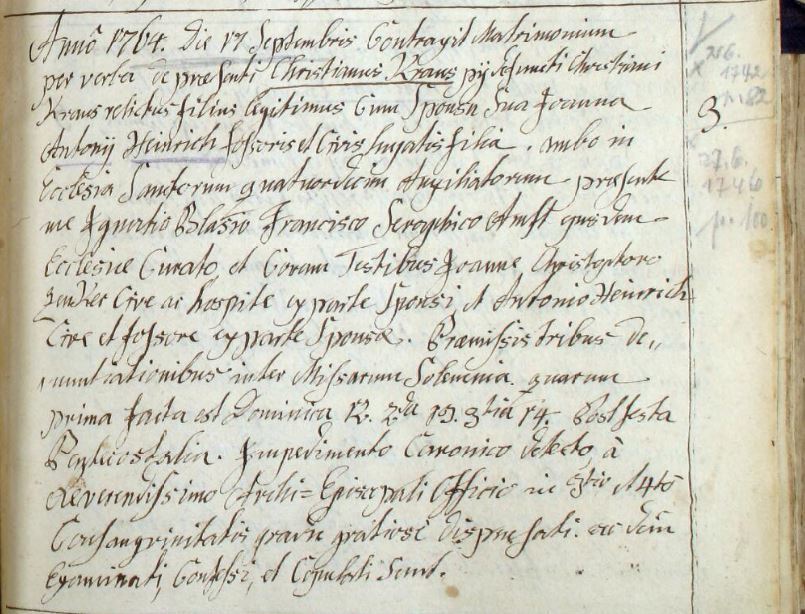 Anno 1764. Die 17 Septembris Contraxit Matrimonium
per verba de præsenti Christianus Kraus pij defuncti Christiani
Kraus relictus filius legitimus Cum Sponsa Sua Joanna
Antonij Heinrich fossoris et Civis filia. ambo in
Ecclesia Sanctorum quatuordecim Auxiliatorum præsente
me Ignatio Blasio Francisco Seraphico ejusdem
Ecclesiæ Curato, et Coram Testibus Joanne Christophoro
Cive ac hospite ex parte Sponsi, et Antonio Heinrich
Cive et fossore ex parte Sponsæ. Præmissis tribus de,,
nuntiationibus inter Missarum Solemnia. quarum
prima facta est Dominica 12. 2da 13. 3tia 14. Post festa
Pentecostalia. Impedimento Canonico detecto à
Reverendissimo Archi=Episcopali Officio in 3tio et 4to
Consanguinitatis gradu gratiose dispensati. ac dein
Examinati, Confessi, et Copulati Sunt.
3.
1742
p. 82
27.6.
1746
p. 100